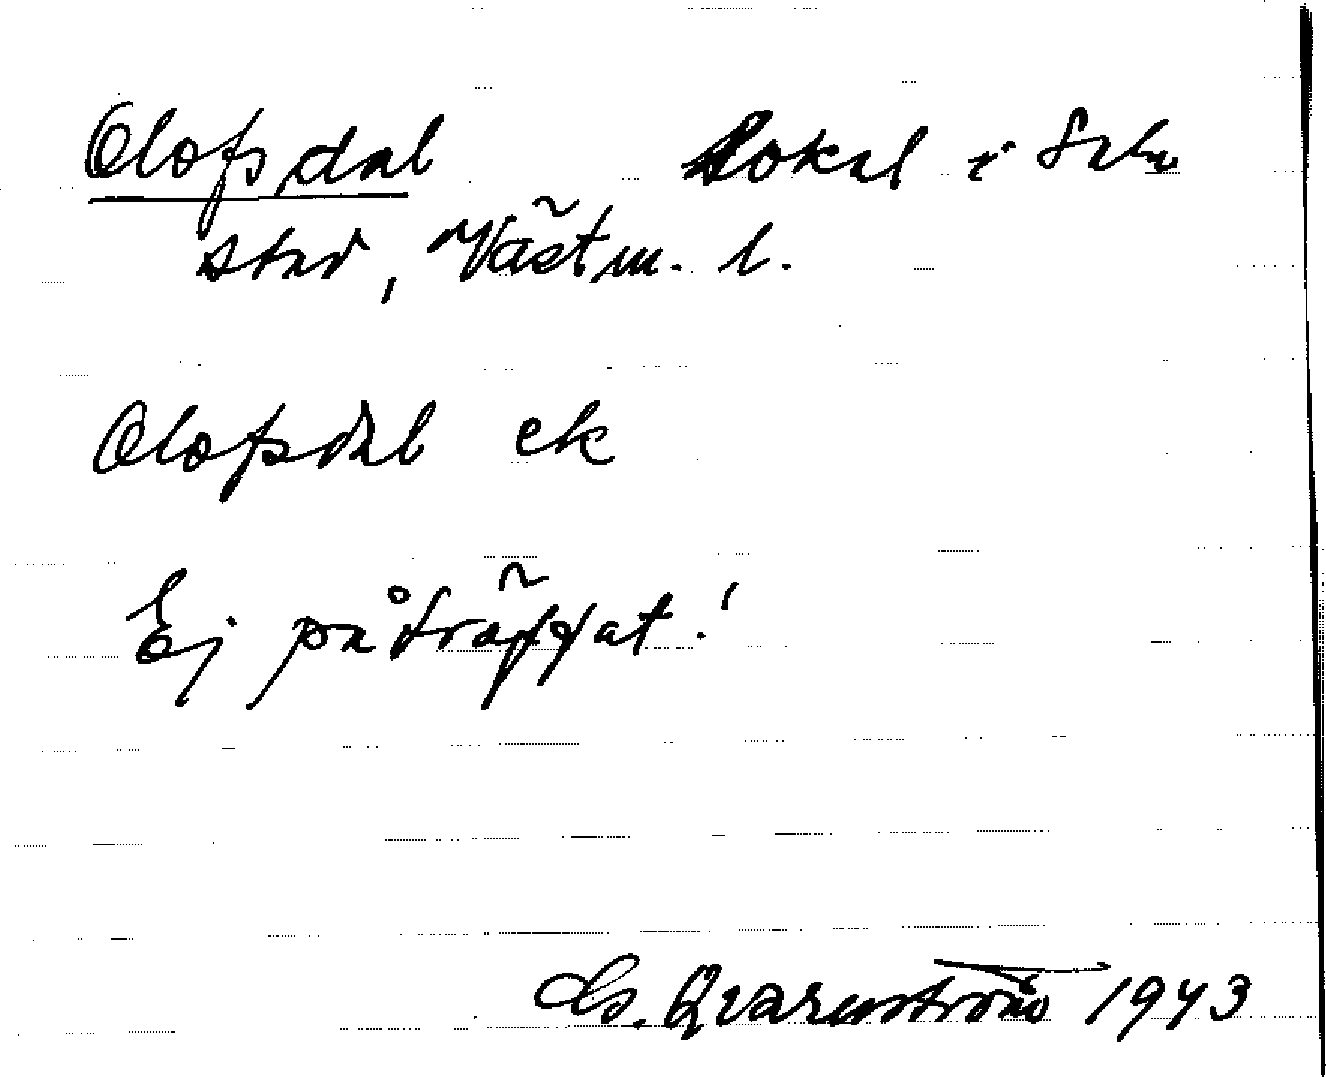 Olofsdal Lokal i Sala
stad, Västm. l.
Olofsdal ek
Ej påträffat!
G. Qvarnström 1943